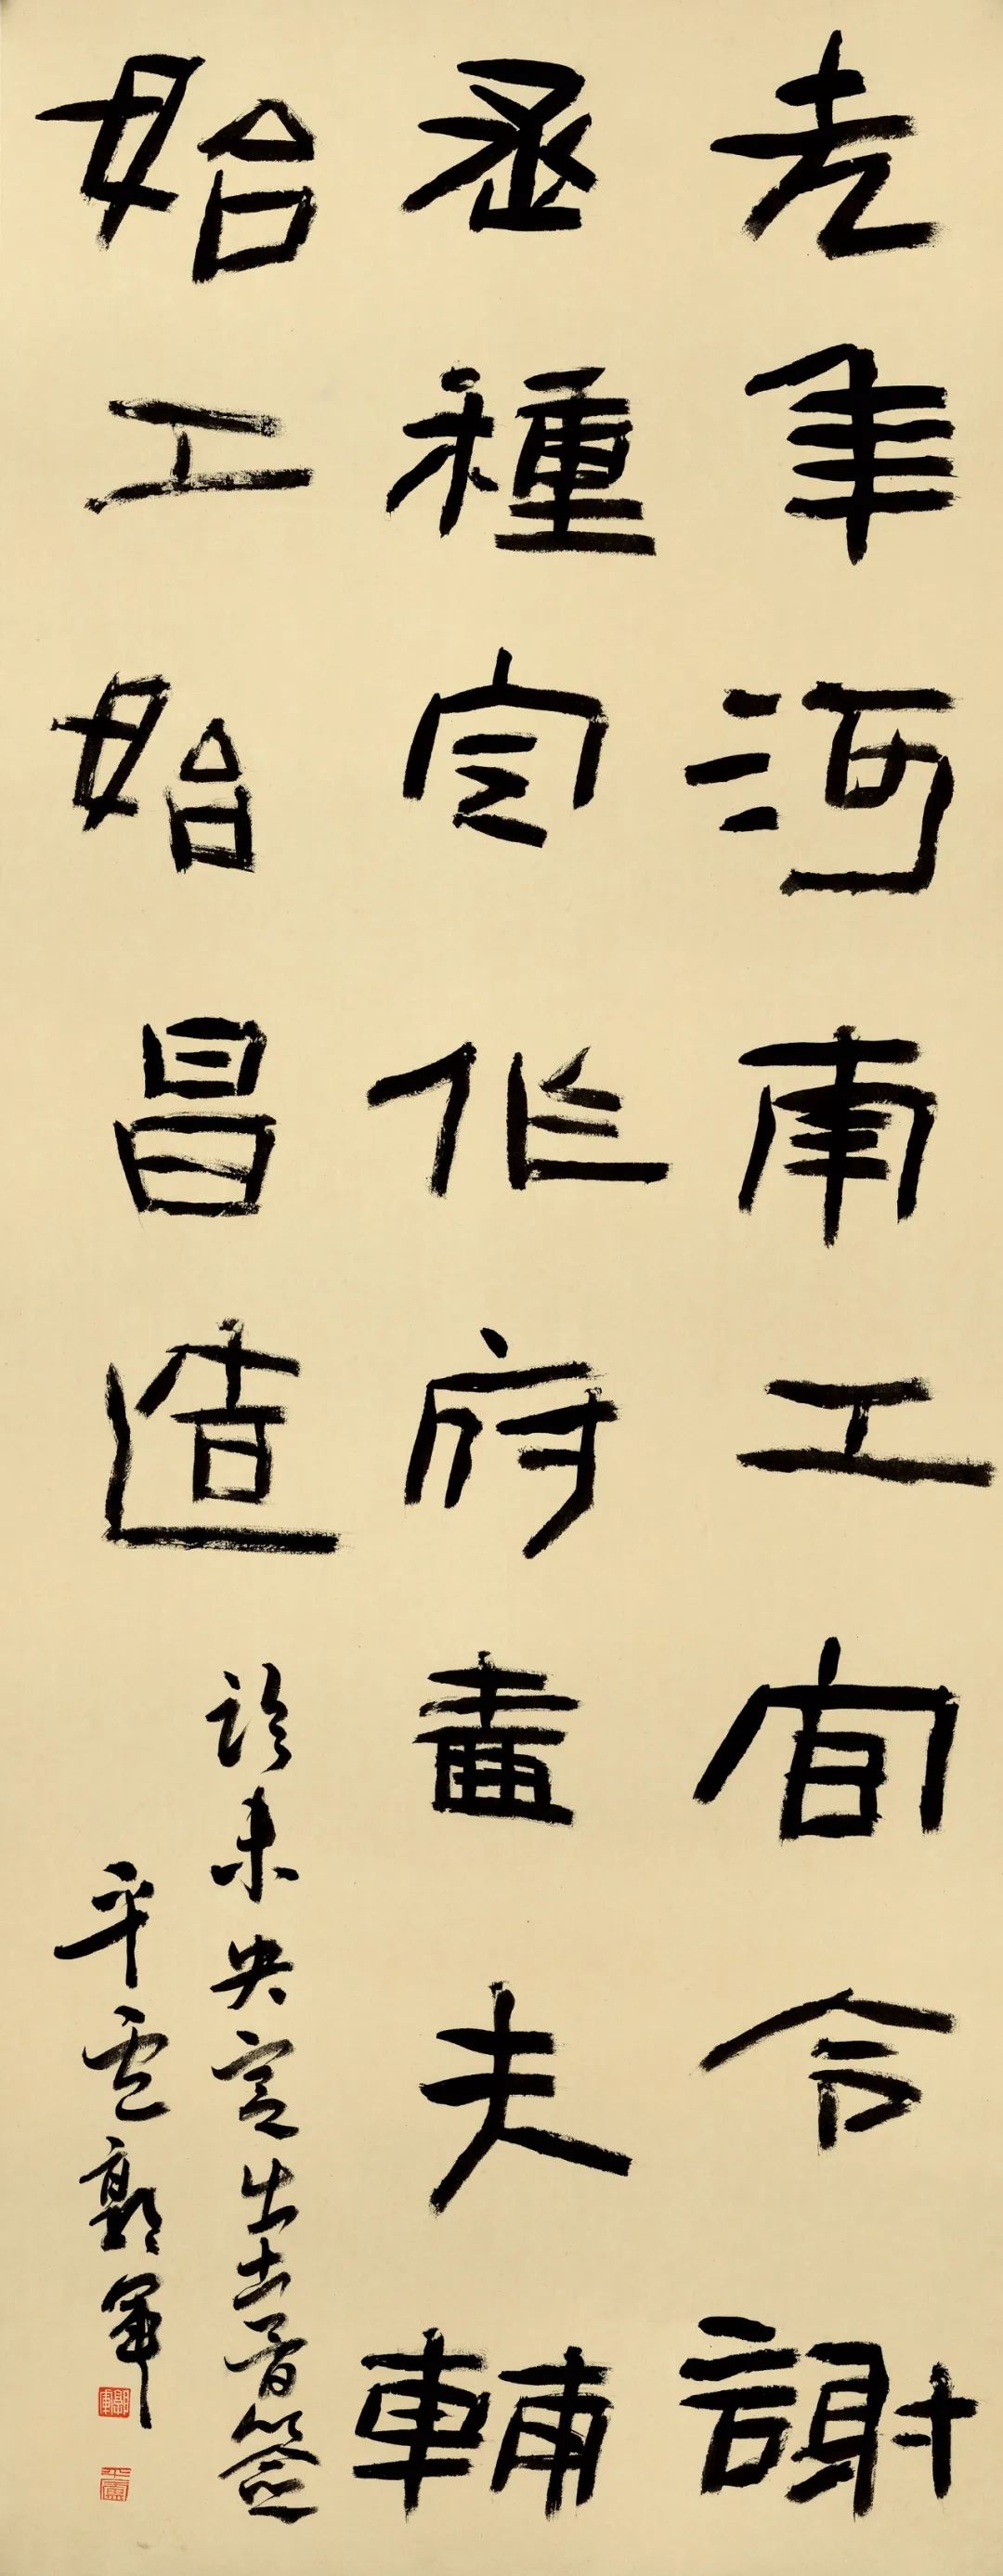 元年河南工官令謝
丞種定作府嗇夫輔
始工始昌造
臨未央宮出土骨簽
平盧郭軍